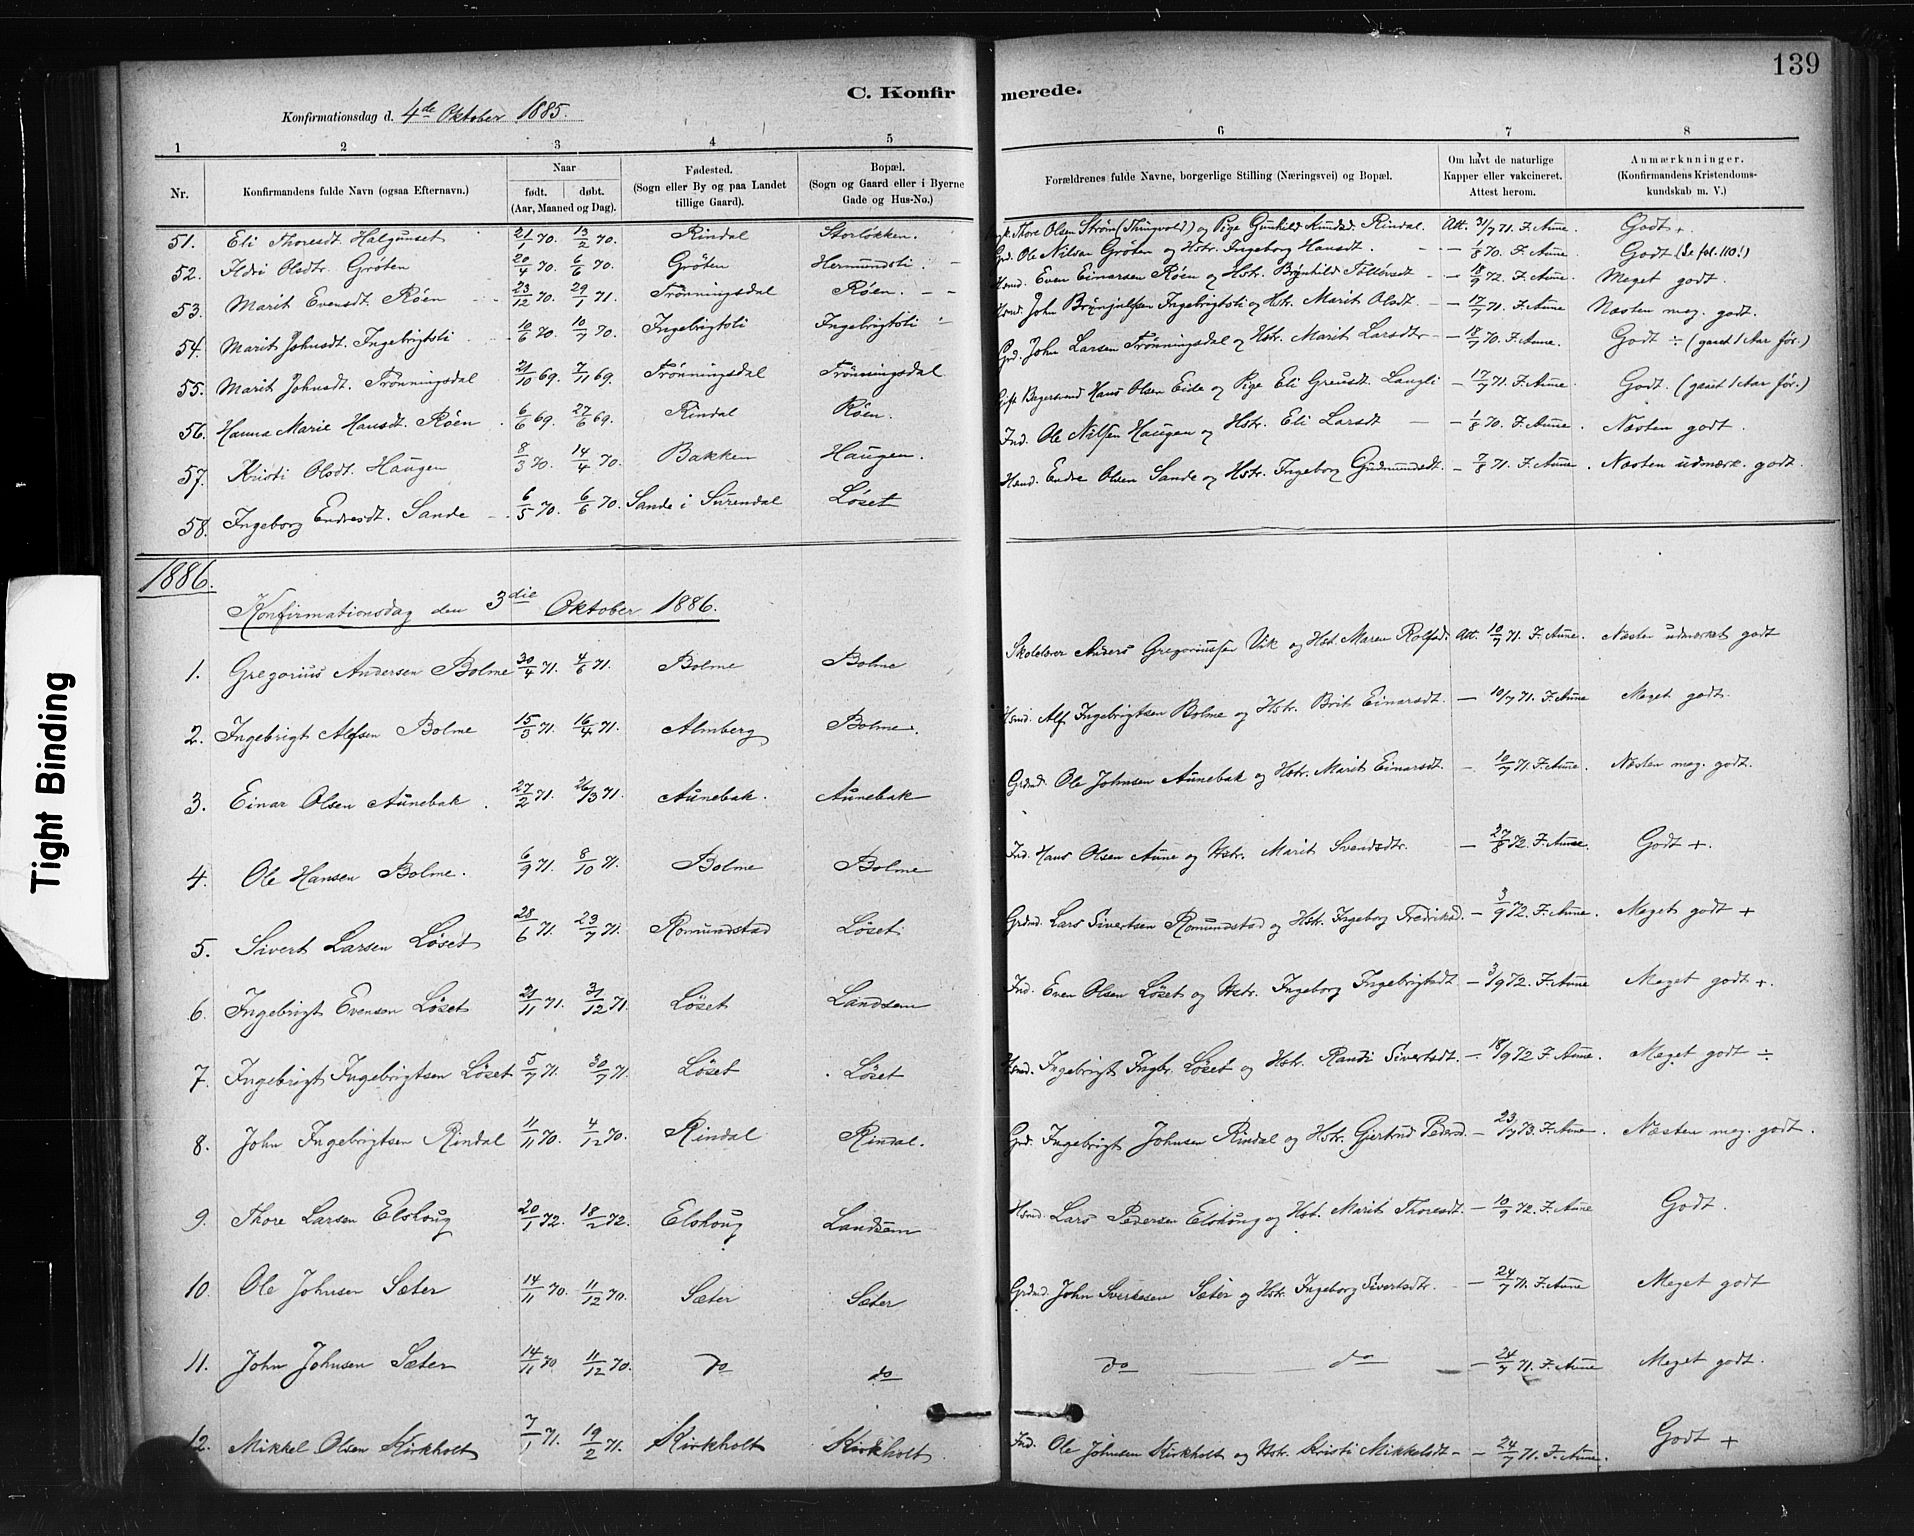 139
C. Konfir merede.
Konfirmationsdag d. 4de Oktober 1885.
1 2 3 4 5 6 7 8
Nr. Konfirmandens fulde Navn (ogsaa Efternavn.) Naar født. døbt. (Aar, Maaned og Dag). Fødested. (Sogn eller By og paa Landet tillige Gaard). Bopæl. (Sogn og Gaard eller i Byerne Gade og Hus-No.) Forældrenes fulde Navne, borgerlige Stilling (Næringsvei) og Bopæl. Om havt de naturlige Kapper eller vakcineret. Attest herom. Anmærkninger. (Konfirmandens Kristendomskundskab m. V.)
51. Eli Thoresdt. Halgunset 21/1 70. 13/2 70. Rindal Storløkken. Thore Olsen Strøm (Thingvold) og Pige Gunhild Knudsd. Rindal. Att. 31/7 71. F. Aune. Godt +
52. Ildri Olsdtr. Grøten 20/4 70. 6/6 70. Grøten Hermundsli - Grd. Ole Nilsen Grøten og Hstr. Ingeborg Hansdt. - - 1/8 70. F. Aune. Godt (Se fol. 110!)
53. Marit Evensdt. Røen 23/12 70. 29/1 71. Trønningsdal Røen. - - Hsmd. Even Einarsen Røen og Hstr. Brynhild Tostensdt - - 18/9 72. F. Aune Meget godt.
54. Marit Johnsdt. Ingebrigtsli 10/6 70. 10/7 70. Ingebrigtsli Ingebrigtsli Hsmd. John Brynjulfsen Ingebrigtsli og Hstr. Marit Olsdt - - 17/7 71. F. Aune Næsten meg. godt.
55. Marit Johnsdt. Trønningsdal 21/10 69. 7/11 69. Trønningsdal Trønningsdal Grd. John Larsen Trønningsdal og Hstr. Marit Larsdtr - 18/7 70. F. Aune. Godt ÷ (gaaet 1 Aar før.)
56. Hanna Marie Hansdt. Røen 6/6 69. 27/6 69. Rindal Røen. Gift Bagersvend Hans Olsen Eide og Pige Eli Greusdt Langli - 17/7 71. F. Aune. Godt. (gaaet 1 Aar før.)
57. Kristi Olsdt. Haugen 8/3 70. 14/4 70. Bakken Haugen. Ind. Ole Nilsen Haugen og Hstr. Eli Larsdt - - 1/8 70. F. Aune. Næsten godt.
58. Ingeborg Endresdt. Sande 6/5 70. 6/6 70. Sande i Surendal Løset Hsmd. Endre Olsen Sande og Hstr. Ingeborg Gudmundsdt. - 7/8 71. F. Aune. Næsten udmærk. godt.
1886.
Konfirmationsdag den 3die Oktober 1886.
1. Gregorius Andersen Bolme 30/4 71. 4/6 71. Bolme Bolme Skolelærer Anders Gregoriussen Vik og Hst. Maren Rolfsd. Att. 10/7 71. F. Aune. Næsten udmærket godt
2. Ingebrigt Alfsen Bolme 15/3 71. 16/4 71. Almberg Bolme. Hsmd. Alf Ingebrigtsen Bolme og Hstr. Brit Einarsdt. - 10/7 71. F. Aune Meget godt.
3. Einar Olsen Aunebak. 27/2 71. 26/3 71. Aunebak. Aunebak Grdmd. Ole Johnsen Aunebak og Hstr. Marit Einarsdt. - 10/7 71. F. Aune. Næsten meg. godt.
4. Ole Hansen Bolme. 6/9 71. 8/10 71. Bolme Bolme Ind. Hans Olsen Aune og Hstr. Marit Svendsdtr. - 27/8 72. F. Aune. Godt +.
5. Sivert Larsen Løset 28/6 71. 23/7 71. Romundstad Løset Grdmd. Lars Sivertsen Romundstad og Hstr. Ingeborg Fredriksd. - 3/9 72. F. Aune. Meget godt +
6. Ingebrigt Evensen Løset 21/11 71. 31/12 71. Løset Landsem Ind. Even Olsen Løset og Hstr. Ingeborg Ingebrigtsdt - 3/9 72. F. Aune Meget godt +.
7. Ingebrigt Ingebrigtsen Løset 5/7 71. 30/7 71. Løset Løset Hsmd. Ingebrigt Ingbr. Løset og Hstr. Randi Sivertsdt. - 18/9 72 F. Aune. Meget godt ÷
8. John Ingebrigtsen Rindal 11/11 70. 4/12 70. Rindal Rindal. Grd. Ingebrigt Johnsen Rindal og Hstr. Gjertrud Pedersd. - 23/7 73. F. Aune. Næsten meg. godt.
9. Thore Larsen Elshoug 20/1 72. 18/2 72. Elshoug Landsem Hsmd. Lars Pedersen Elshoug og Hst. Marit Thoresdt. - 10/9 72. F. Aune Godt.
10. Ole Johnsen Sæter 14/11 70. 11/12 70. Sæter Sæter Grdmd. John Sverkesen Sæter og Hstr. Ingeborg Sivertsdtr. - 24/7 71. F. Aune Meget godt
11. John Johnsen Sæter 14/11 70 11/12 70. do do do do - 24/7 71. F. Aune Meget godt.
12. Mikkel Olsen Kirkholt 7/1 71. 19/2 71. Kirkholt Kirkholt. Ind. Ole Johnsen Kirkholt og Hstr. Kristi Mikkelsdt - - 24/7 71. F. Aune. Godt +
Tight Binding